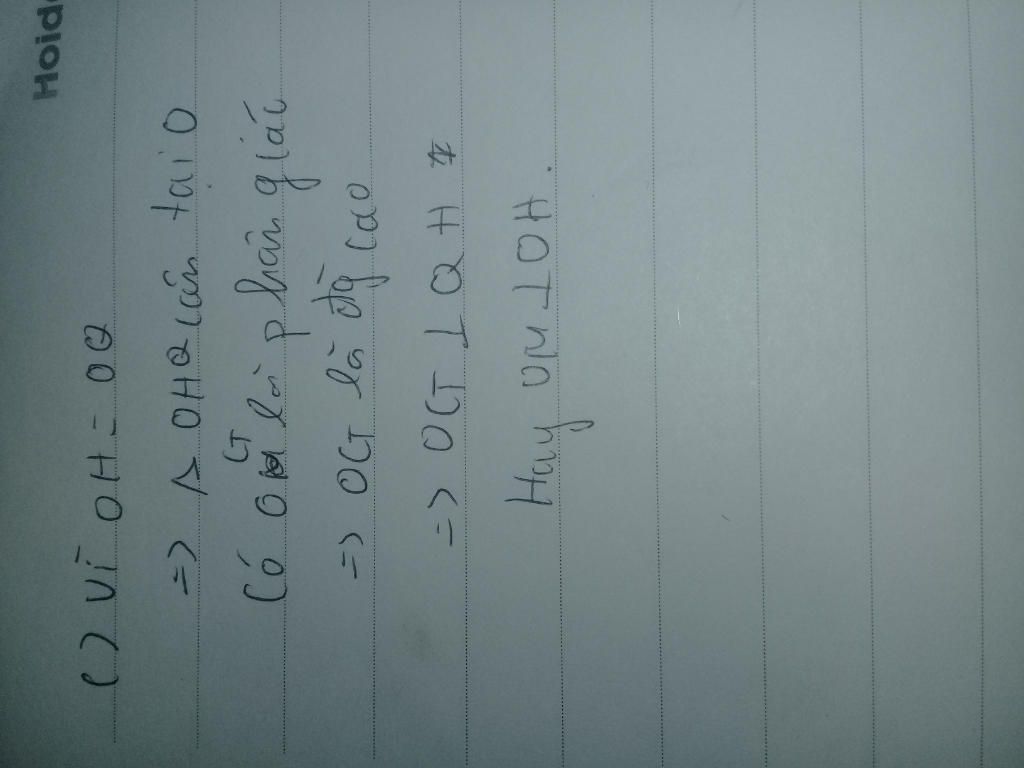 Hoid
c) Vì OH = OQ
=> Δ OHQ cân tại O
Có OG là phân giác
=> OG là đg cao
=> OG ⊥ QH
Hay OM ⊥ OH.